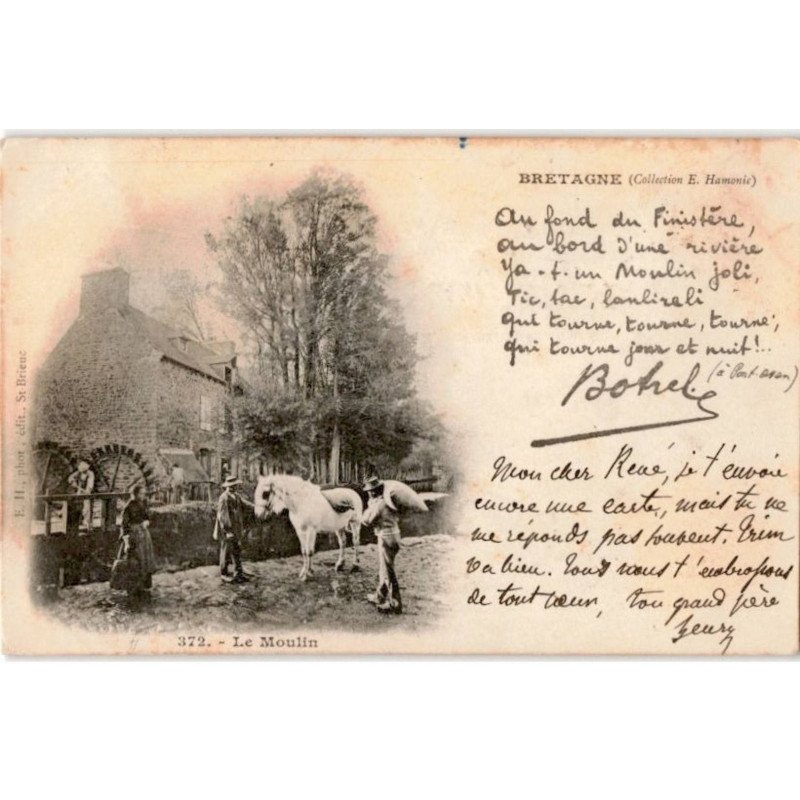 BRETAGNE (Collection E. Hamonic)
Au fond du Finistère,
au bord d'une rivière
Ya-t-un Moulin joli,
Tic, tac, lanlireli
qui tourne, tourne, tourne,
qui tourne jour et nuit!..
Botrel (à Pont-aven)
Mon cher René, je t'envoie
encore une carte, mais tu ne
me réponds pas souvent. Trim
va bien. Tous nous t'embrassons
de tout cœur, ton grand père
Henry
E. H, phot. édit., St Brieuc
372. - Le Moulin